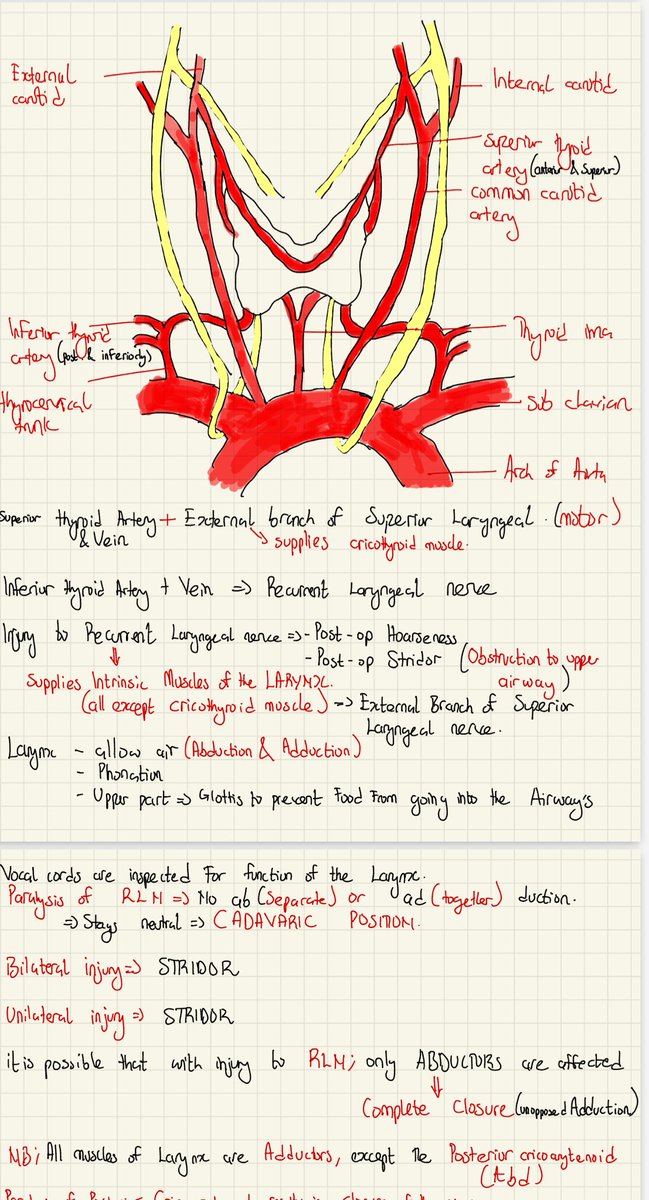 External
carotid
Internal carotid
Superior thyroid
artery (anterior & Superior)
common carotid
artery
Inferior thyroid
artery (post & inferiorly)
thyrocervical
trunk
Thyroid ima
Sub clavian
Arch of Aorta
Superior thyroid Artery + External branch of Superior Laryngeal. (motor)
& Vein
supplies cricothyroid muscle.
Inferiur thyroid Artery + Vein => Recurrent Laryngeal nerve
Injury to Recurrent Laryngeal nerve => - Post-op Hoarseness
- Post-op Stridor (Obstruction to upper
airway)
Supplies Intrinsic Muscles of the LARYNX.
(all except cricothyroid muscle) -> External Branch of Superior
Laryngeal nerve.
Larynx - allow air (Abduction & Adduction)
- Phonation
- Upper part => Glottis to prevent Food From going into the Airway's
Vocal cords are inspected For function of the Larynx.
Paralysis of RLN => No ab (separate) or ad (together) duction.
=> Stays neutral => CADAVARIC POSITION.
Bilateral injury => STRIDOR
Unilateral injury => STRIDOR
it is possible that with injury to RLN; only ABDUCTORS are affected
Complete Closure (unopposed Adduction)
NB; All muscles of Larynx are Adductors, except the Posterior cricoarytenoid
(Abd)